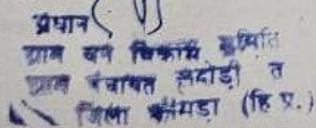 प्रधान
ग्राम वन विकास समिति
ग्राम पंचायत सदोड़ी त
जिला काँगड़ा (हि प्र.)